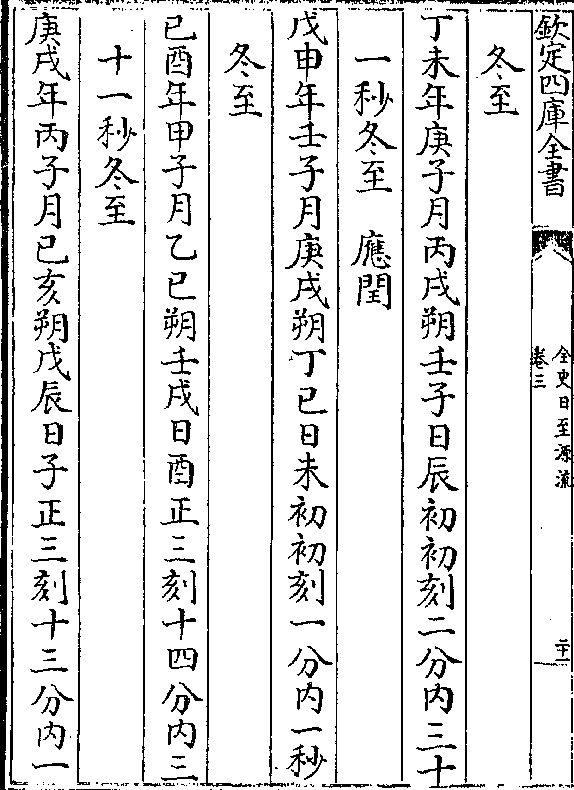 欽定四庫全書
全史日至源流
卷三
二十一
冬至
丁未年庚子月丙戌朔壬子日辰初初刻二分內三十
一秒冬至　應閏
戊申年壬子月庚戌朔丁巳日未初初刻一分內一秒
冬至
己酉年甲子月乙巳朔壬戌日酉正三刻十四分內三
十一秒冬至
庚戌年丙子月己亥朔戊辰日子正三刻十三分內一